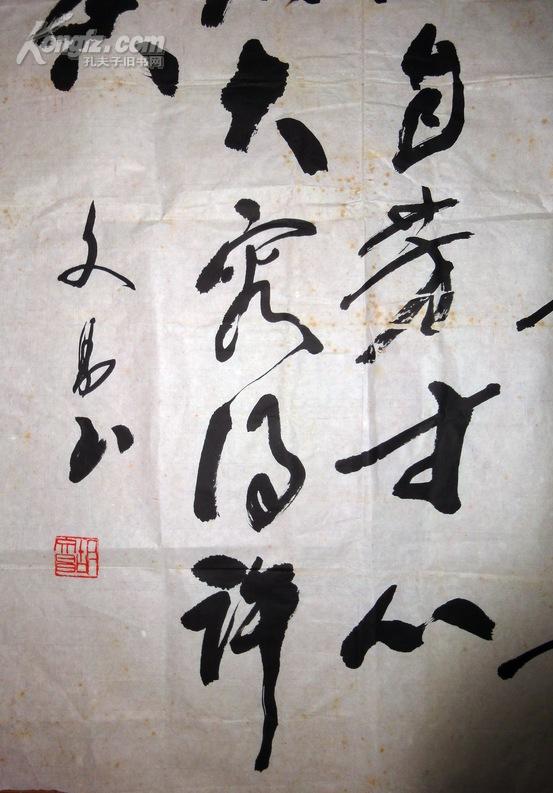 Kongfz.com
孔夫子旧书网
自芳寸心
大容得许
文书